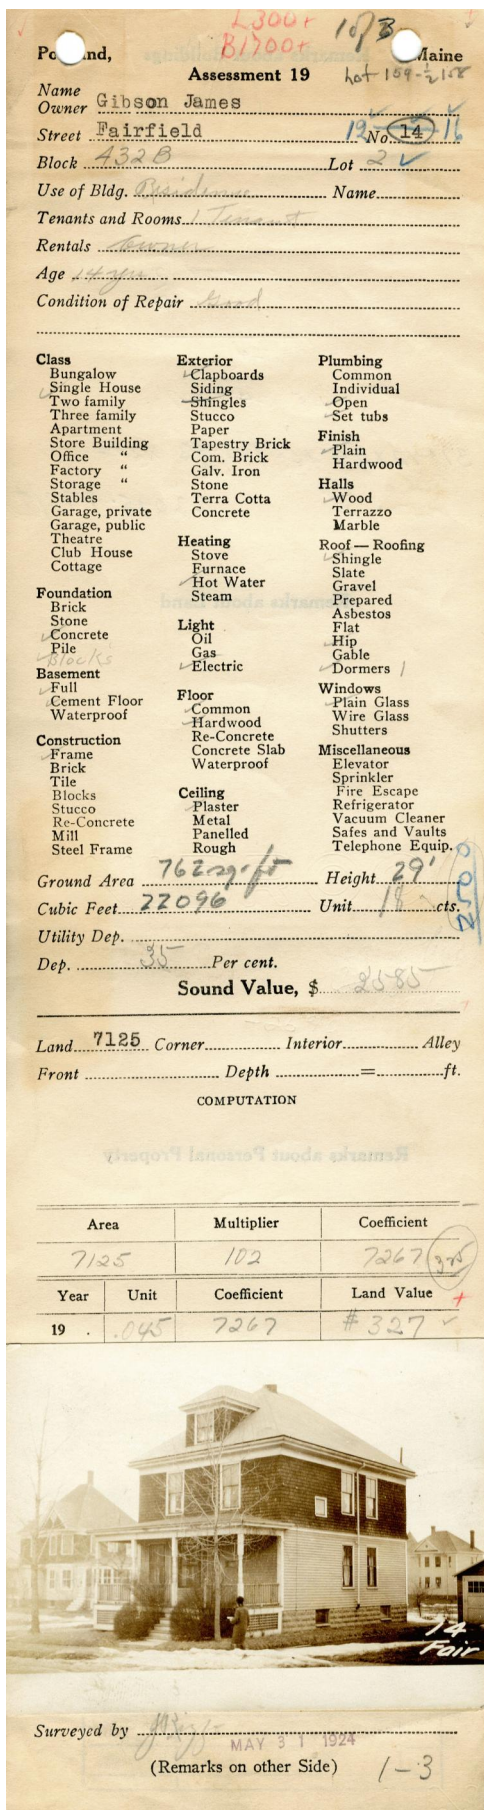 L300+
B1700+
1 of 3
Portland, Maine
Assessment 19
Lot 159-½158
Name
Owner Gibson James
Street Fairfield 12 No. 14 16
Block 432B Lot 2
Use of Bldg. Residence Name
Tenants and Rooms 1 Tenant
Rentals Owner
Age 14 yrs.
Condition of Repair Good
Class
Bungalow
Single House
Two family
Three family
Apartment
Store Building
Office "
Factory "
Storage "
Stables
Garage, private
Garage, public
Theatre
Club House
Cottage
Foundation
Brick
Stone
Concrete
Pile
Blocks
Basement
Full
Cement Floor
Waterproof
Construction
Frame
Brick
Tile
Blocks
Stucco
Re-Concrete
Mill
Steel Frame
Exterior
Clapboards
Siding
Shingles
Stucco
Paper
Tapestry Brick
Com. Brick
Galv. Iron
Stone
Terra Cotta
Concrete
Heating
Stove
Furnace
Hot Water
Steam
Light
Oil
Gas
Electric
Floor
Common
Hardwood
Re-Concrete
Concrete Slab
Waterproof
Ceiling
Plaster
Metal
Panelled
Rough
Plumbing
Common
Individual
Open
Set tubs
Finish
Plain
Hardwood
Halls
Wood
Terrazzo
Marble
Roof — Roofing
Shingle
Slate
Gravel
Prepared
Asbestos
Flat
Hip
Gable
Dormers 1
Windows
Plain Glass
Wire Glass
Shutters
Miscellaneous
Elevator
Sprinkler
Fire Escape
Refrigerator
Vacuum Cleaner
Safes and Vaults
Telephone Equip.
2500
Ground Area 762 sq. ft Height 29'
Cubic Feet 22096 Unit 18 cts.
Utility Dep.
Dep. 35 Per cent.
Sound Value, $ 2585
Land 7125 Corner Interior Alley
Front Depth = ft.
COMPUTATION
Remarks about Personal Property
Area Multiplier Coefficient
7125 102 7267 325
Year Unit Coefficient Land Value
19 . .045 7267 # 327
14
Fair
Surveyed by
MAY 31 1924
(Remarks on other Side) 1-3